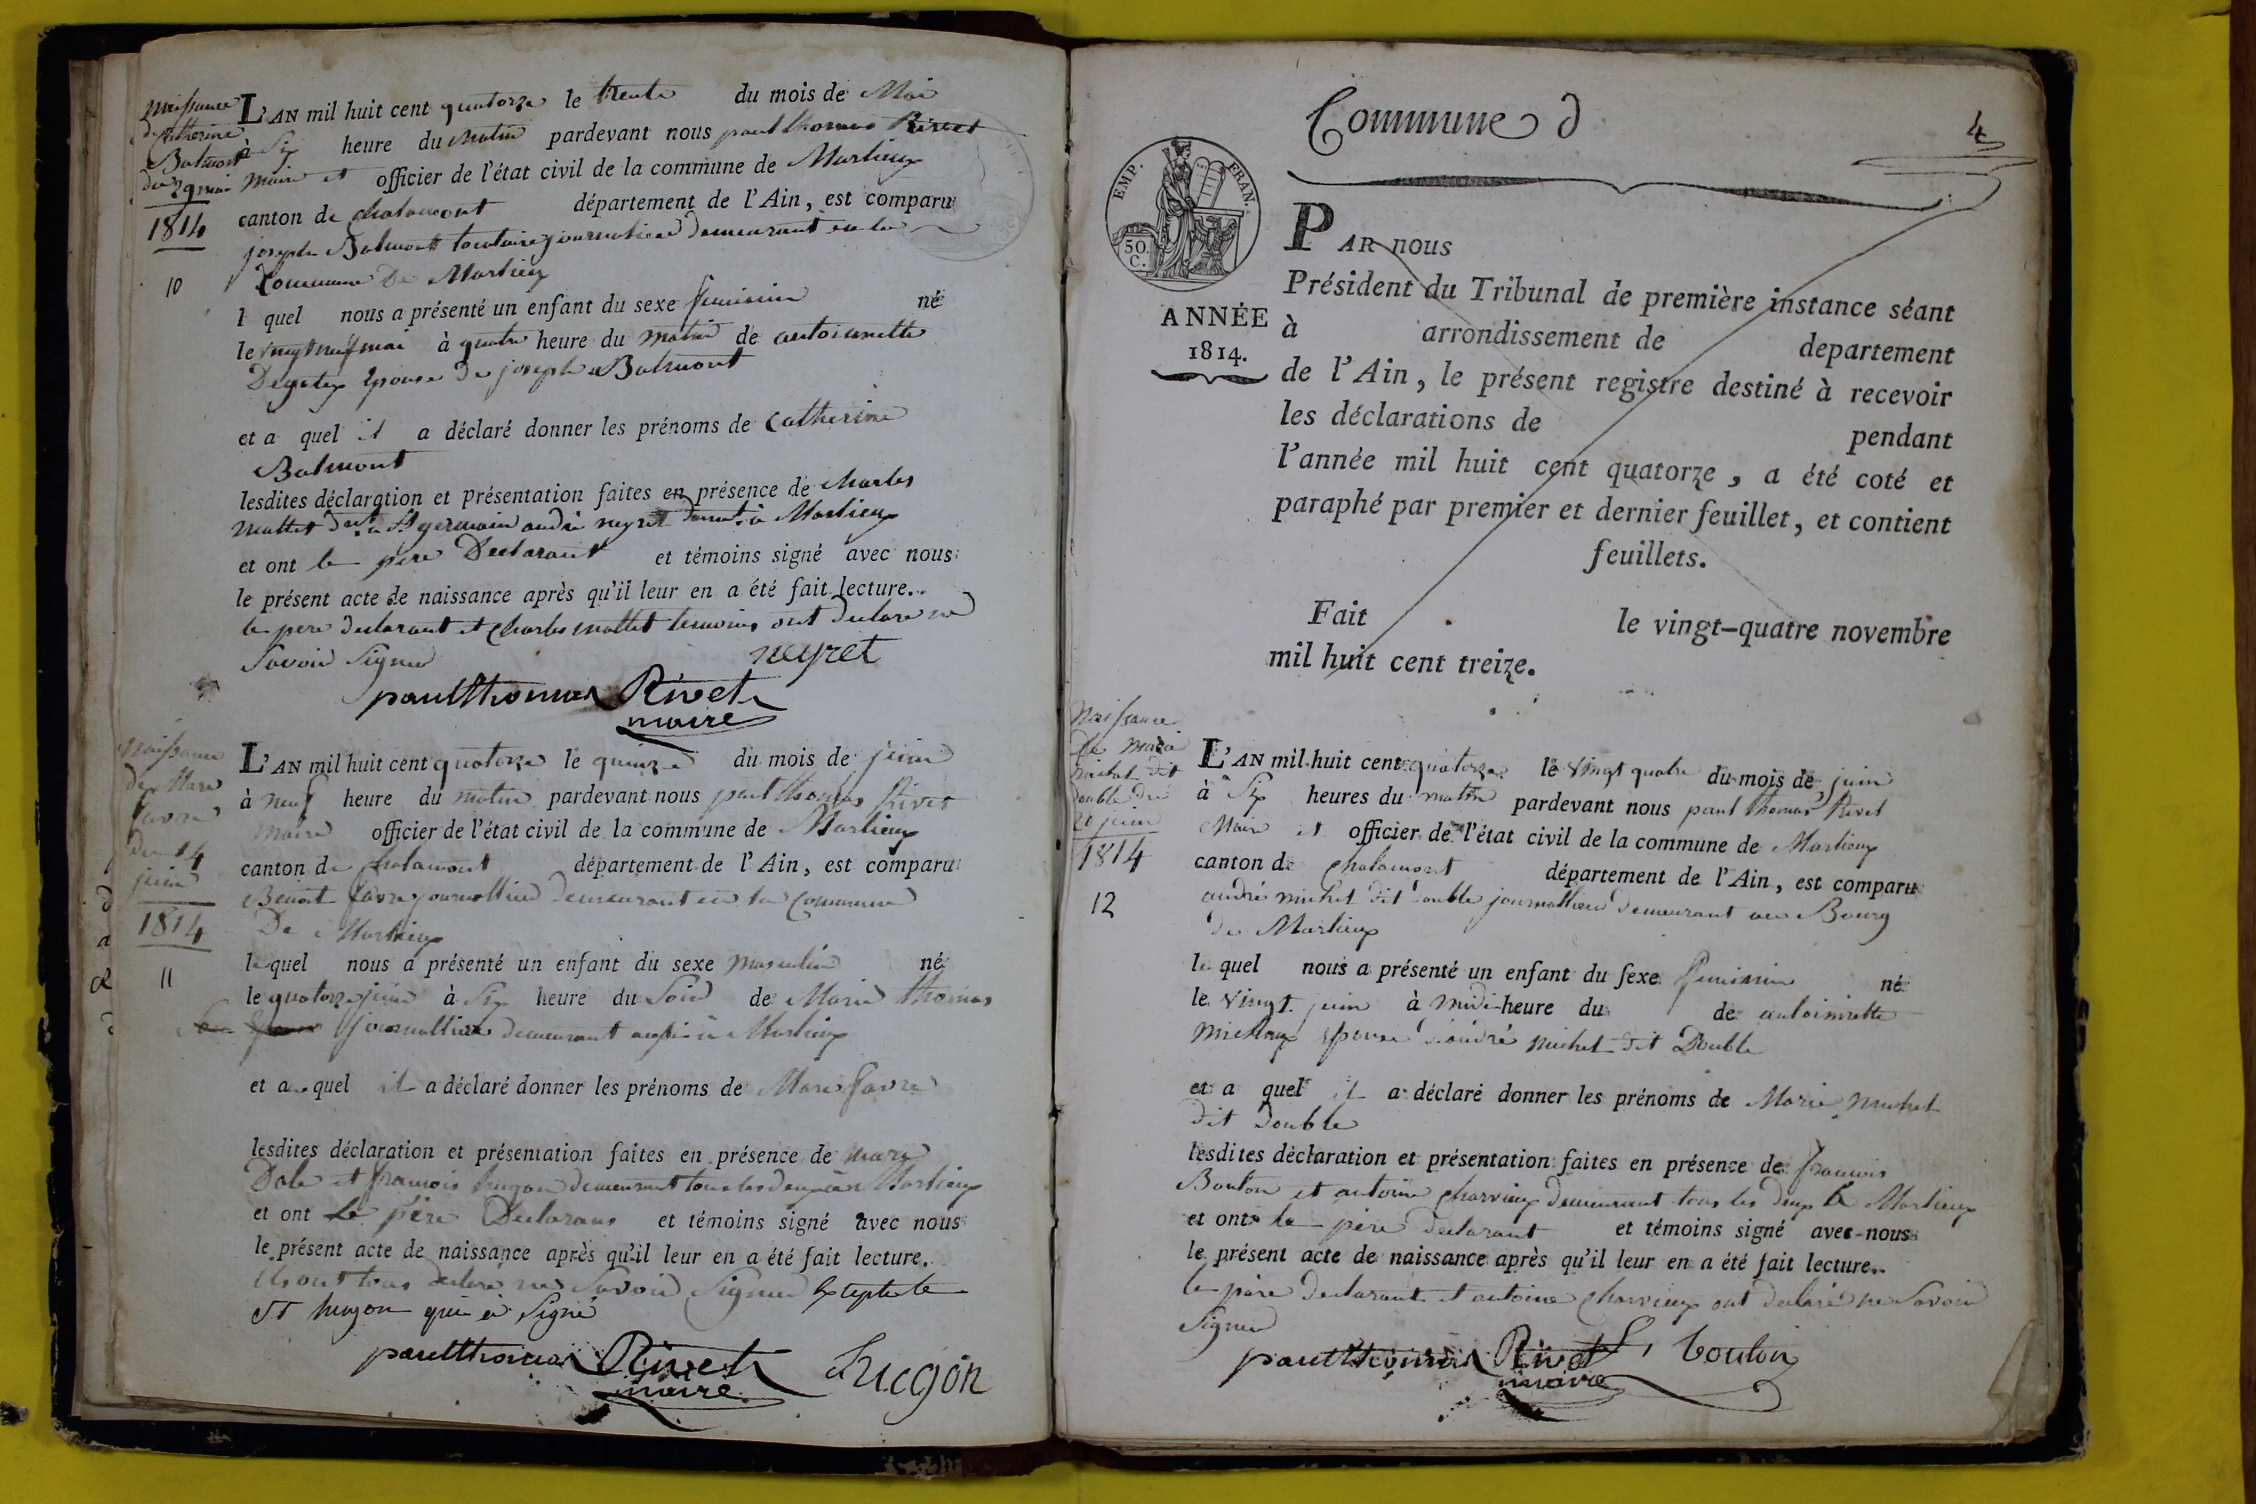 Naissance
de Catherine
Balmont
du 29 mai
1814
10
L'AN mil huit cent quatorze le trente du mois de Mai
à Six heure du matin pardevant nous paul thomas Rivet
maire et officier de l'état civil de la commune de Marlieux
canton de chalamont département de l'Ain, est comparu
joseph Balmont locataire journalier demeurant en la
Commune De Marlieux
l quel nous a présenté un enfant du sexe feminin né
le vingt neuf mai à quatre heure du matin de antoinette
Degletex Epouse De joseph Balmont
et a quel il a déclaré donner les prénoms de Catherine
Balmont
lesdites déclaration et présentation faites en présence de charles
mallet demt a St germain andré neyret demt à Marlieux
et ont le père Declarant et témoins signé avec nous
le présent acte de naissance après qu'il leur en a été fait lecture..
le pere declarant et Charles mallet temoins ont declare ne
Savoir Signer
neyret
paul thomas Rivet
maire
Naissance
de Marc
favre
du 14
juin
1814
11
L'AN mil huit cent quatorze le quinze du mois de juin
à neuf heure du matin pardevant nous paul thomas Rivet
maire officier de l'état civil de la commune de Marlieux
canton de chalamont département de l'Ain, est comparu
Benoit favre journallier demeurant en la Commune
De Marlieux
le quel nous a présenté un enfant du sexe masculin né
le quatorze juin à Six heure du Soir de Marie thomas
journalliere demeurant aussi à Marlieux
et a quel il a déclaré donner les prénoms de Marc favre
lesdites déclaration et présentation faites en présence de marc
Dole et françois hugon demeurant tous les deux à Marlieux
et ont le père Declarans et témoins signé avec nous
le présent acte de naissance après qu'il leur en a été fait lecture.
ils ont tous declaré ne Savoir Signer Excepte le
dt hugon qui a Signé
paul thomas Rivet
maire
hugon
Commune d
4
EMP. FRAN.
50 C.
ANNÉE
1814.
PAR nous
Président du Tribunal de première instance séant
à arrondissement de departement
de l'Ain, le présent registre destiné à recevoir
les déclarations de pendant
l'année mil huit cent quatorze, a été coté et
paraphé par premier et dernier feuillet, et contient
feuillets.
Fait le vingt-quatre novembre
mil huit cent treize.
Naissance
de marie
michel dit
double du
20 juin
1814
12
L'AN mil huit cent quatorze le vingt quatre du mois de juin
à Six heures du matin pardevant nous paul thomas Rivet
Maire et officier de l'état civil de la commune de Marlieux
canton de chalamont département de l'Ain, est comparu
andré michel dit double journallier demeurant au Bourg
de Marlieux
le quel nous a présenté un enfant du sexe feminin né
le vingt juin à midi heure du de antoinette
michoux epouse d'andré michel dit Double
et a quel il a déclaré donner les prénoms de Marie michel
dit double
lesdites déclaration et présentation faites en présence de francois
Bouton et antoine charvieux demeurant tous les deux à Marlieux
et ont le père declarant et témoins signé avec nous
le présent acte de naissance après qu'il leur en a été fait lecture..
le père declarant et antoine charvieux ont declaré ne Savoir
Signer
paul thomas Rivet
maire
f. bouton